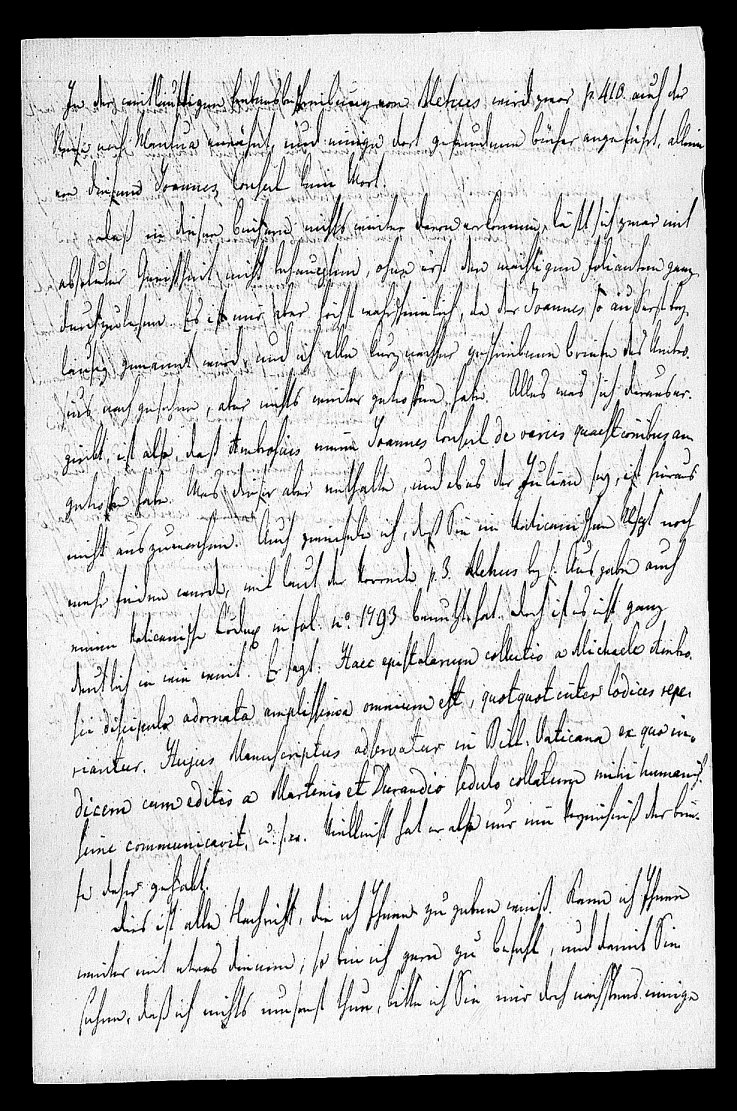 In der weitläuftigen Lebensbeschreibung von Mehus wird zwar p. 410. auch der
Reise nach Mantua erwähnt, und einige dort gefundene Bücher angeführt, allein
von diesem Joannes Consul kein Wort.
Daß in diesen Büchern nichts weiter davon vorkomme, läßt sich zwar mit
absoluter Gewißheit nicht behaupten, ohne erst den mächtigen Folianten ganz
durchzulesen. Es ist mir aber höchst wahrscheinlich, da der Joannes so äußerst bey-
läufig genannt wird, und ich alle kurz nachher geschriebenen Briefe des Ambro-
sius nachgesehen, aber nichts weiter gefunden habe. Alles was sich daraus er-
giebt, ist also, daß Ambrosius einen Joannes Consul de variis quaestionibus an-
getroffen habe. Was dieser aber enthalte, und ob es der Julian sey, ist hieraus
nicht auszumachen. Auch zweifele ich, daß Sie im Vaticanischen Msspt noch
mehr finden werde, weil laut der Vorrede, p. 3. Mehus bey s. Ausgabe auch
einen Vaticanische Codex in fol. no. 1793 benutzt hat. doch ist es nicht ganz
deutlich in wie weit. Er sagt: Haec epistolarum collectio a Michaele Ambro-
sii discipulo adornata amplissima omnium est, quotquot inter Codices repe-
riantur. Hujus Manuscriptus adservatur in Bibl. Vaticana ex quo in-
dicem cum editis a Martenio et Durandio sedulo collatum mihi humanis-
sime communicavit, u. s. w. Vielleicht hat er also nur ein Verzeichniß der Brie-
fe daher gehabt.
Dies ist alle Nachricht, die ich Ihnen zu geben weiß. Kann ich Ihnen
weiter mit etwas dienen, so bin ich gern zu Befehl, und damit Sie
sehen, daß ich nichts umsonst thue, bitte ich Sie mir doch nächstens einige